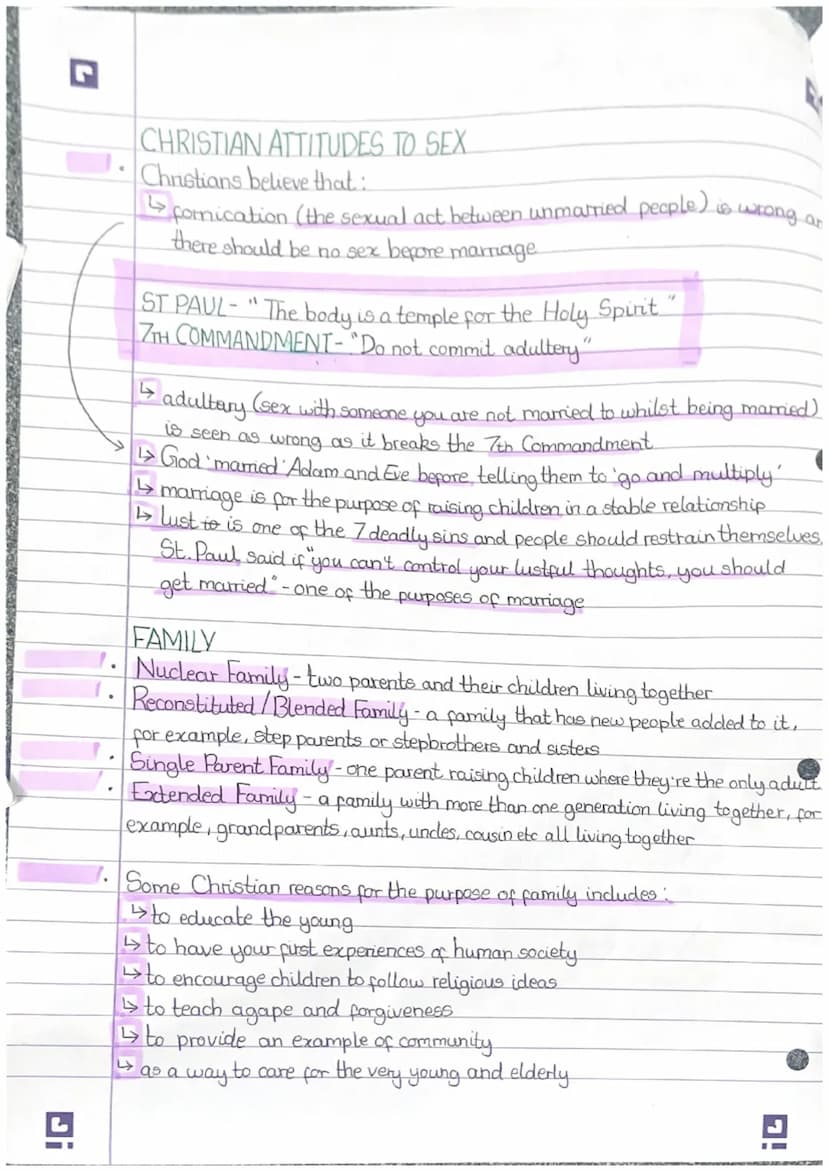 CHRISTIAN ATTITUDES TO SEX
· Christians believe that:
↳ fornication (the sexual act between unmarried people) is wrong an
there should be no sex before marriage
ST PAUL - "The body is a temple for the Holy Spirit"
7TH COMMANDMENT - "Do not commit adultery"
↳ adultary (sex with someone you are not married to whilst being married)
is seen as wrong as it breaks the 7th Commandment
↳ God 'married' Adam and Eve before telling them to 'go and multiply'
↳ marriage is for the purpose of raising children in a stable relationship
↳ lust is is one of the 7 deadly sins and people should restrain themselves.
St. Paul said if "you can't control your lustful thoughts, you should
get married" - one of the purposes of marriage
FAMILY
· Nuclear Family - two parents and their children living together
· Reconstituted / Blended Family - a family that has new people added to it,
for example, step parents or stepbrothers and sisters
· Single Parent Family - one parent raising children where they're the only adult
· Extended Family - a family with more than one generation living together, for
example, grandparents, aunts, uncles, cousin etc all living together
· Some Christian reasons for the purpose of family includes:
↳ to educate the young
↳ to have your first experiences of human society
↳ to encourage children to follow religious ideas
↳ to teach agape and forgiveness
↳ to provide an example of community
↳ as a way to care for the very young and elderly